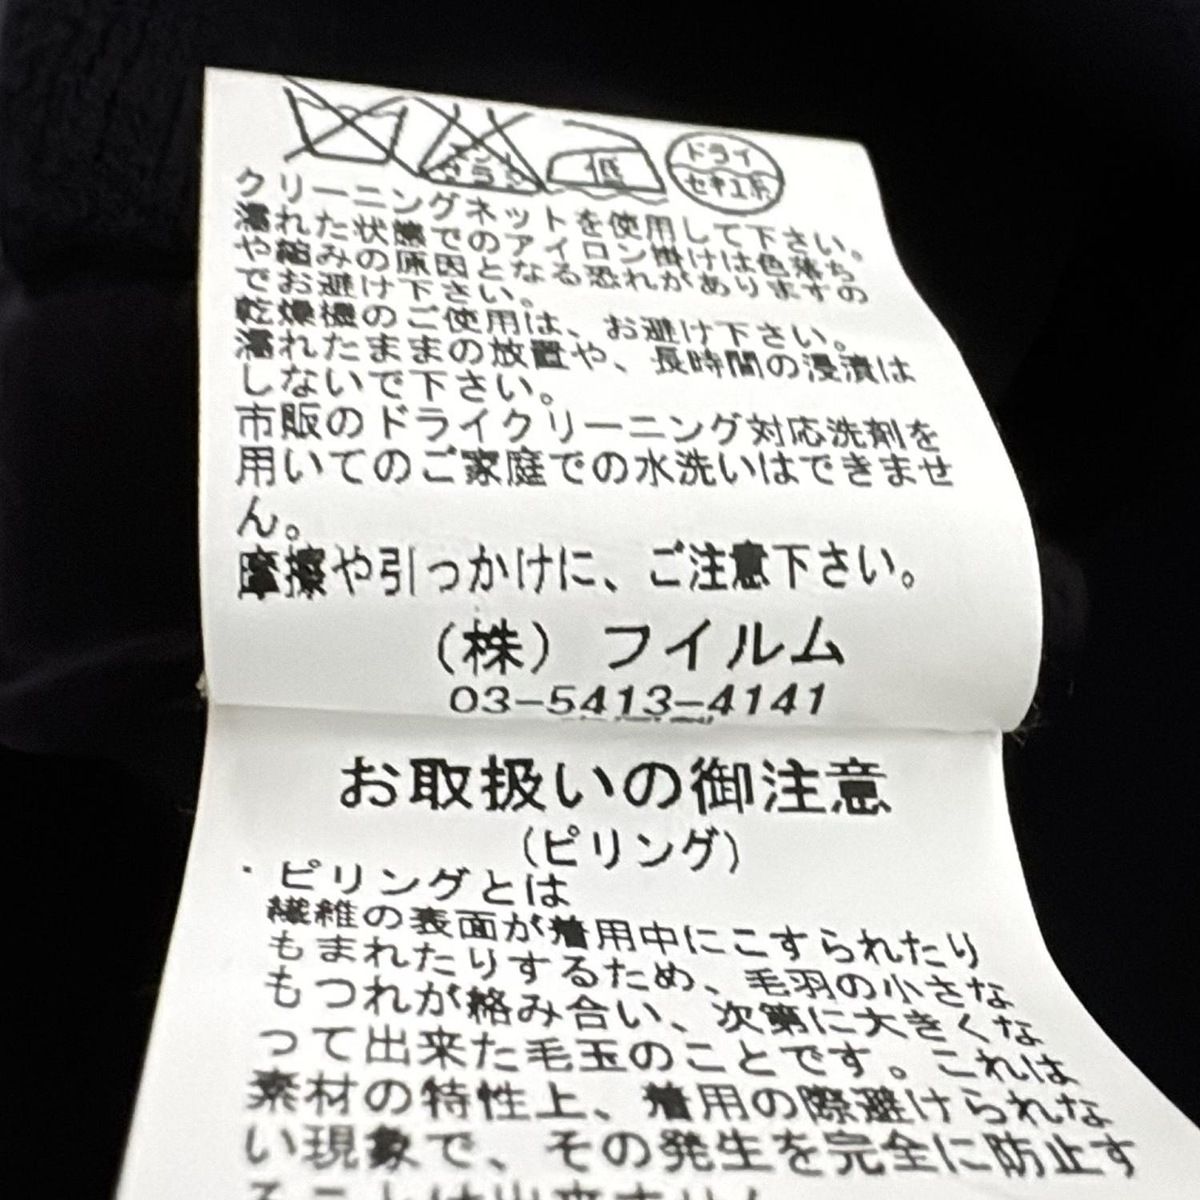 エンソ
サラシ
低
ドライ
セキユ系
クリーニングネットを使用して下さい。
濡れた状態でのアイロン掛けは色落ち
や縮みの原因となる恐れがありますの
でお避け下さい。
乾燥機のご使用は、お避け下さい。
濡れたままの放置や、長時間の浸漬は
しないで下さい。
市販のドライクリーニング対応洗剤を
用いてのご家庭での水洗いはできませ
ん。
摩擦や引っかけに、ご注意下さい。
(株) フイルム
03-5413-4141
お取扱いの御注意
(ピリング)
・ピリングとは
繊維の表面が着用中にこすられたり
もまれたりするため、毛羽の小さな
もつれが絡み合い、次第に大きくな
って出来た毛玉のことです。これは
素材の特性上、着用の際避けられな
い現象で、その発生を完全に防止す
ることは出来ません